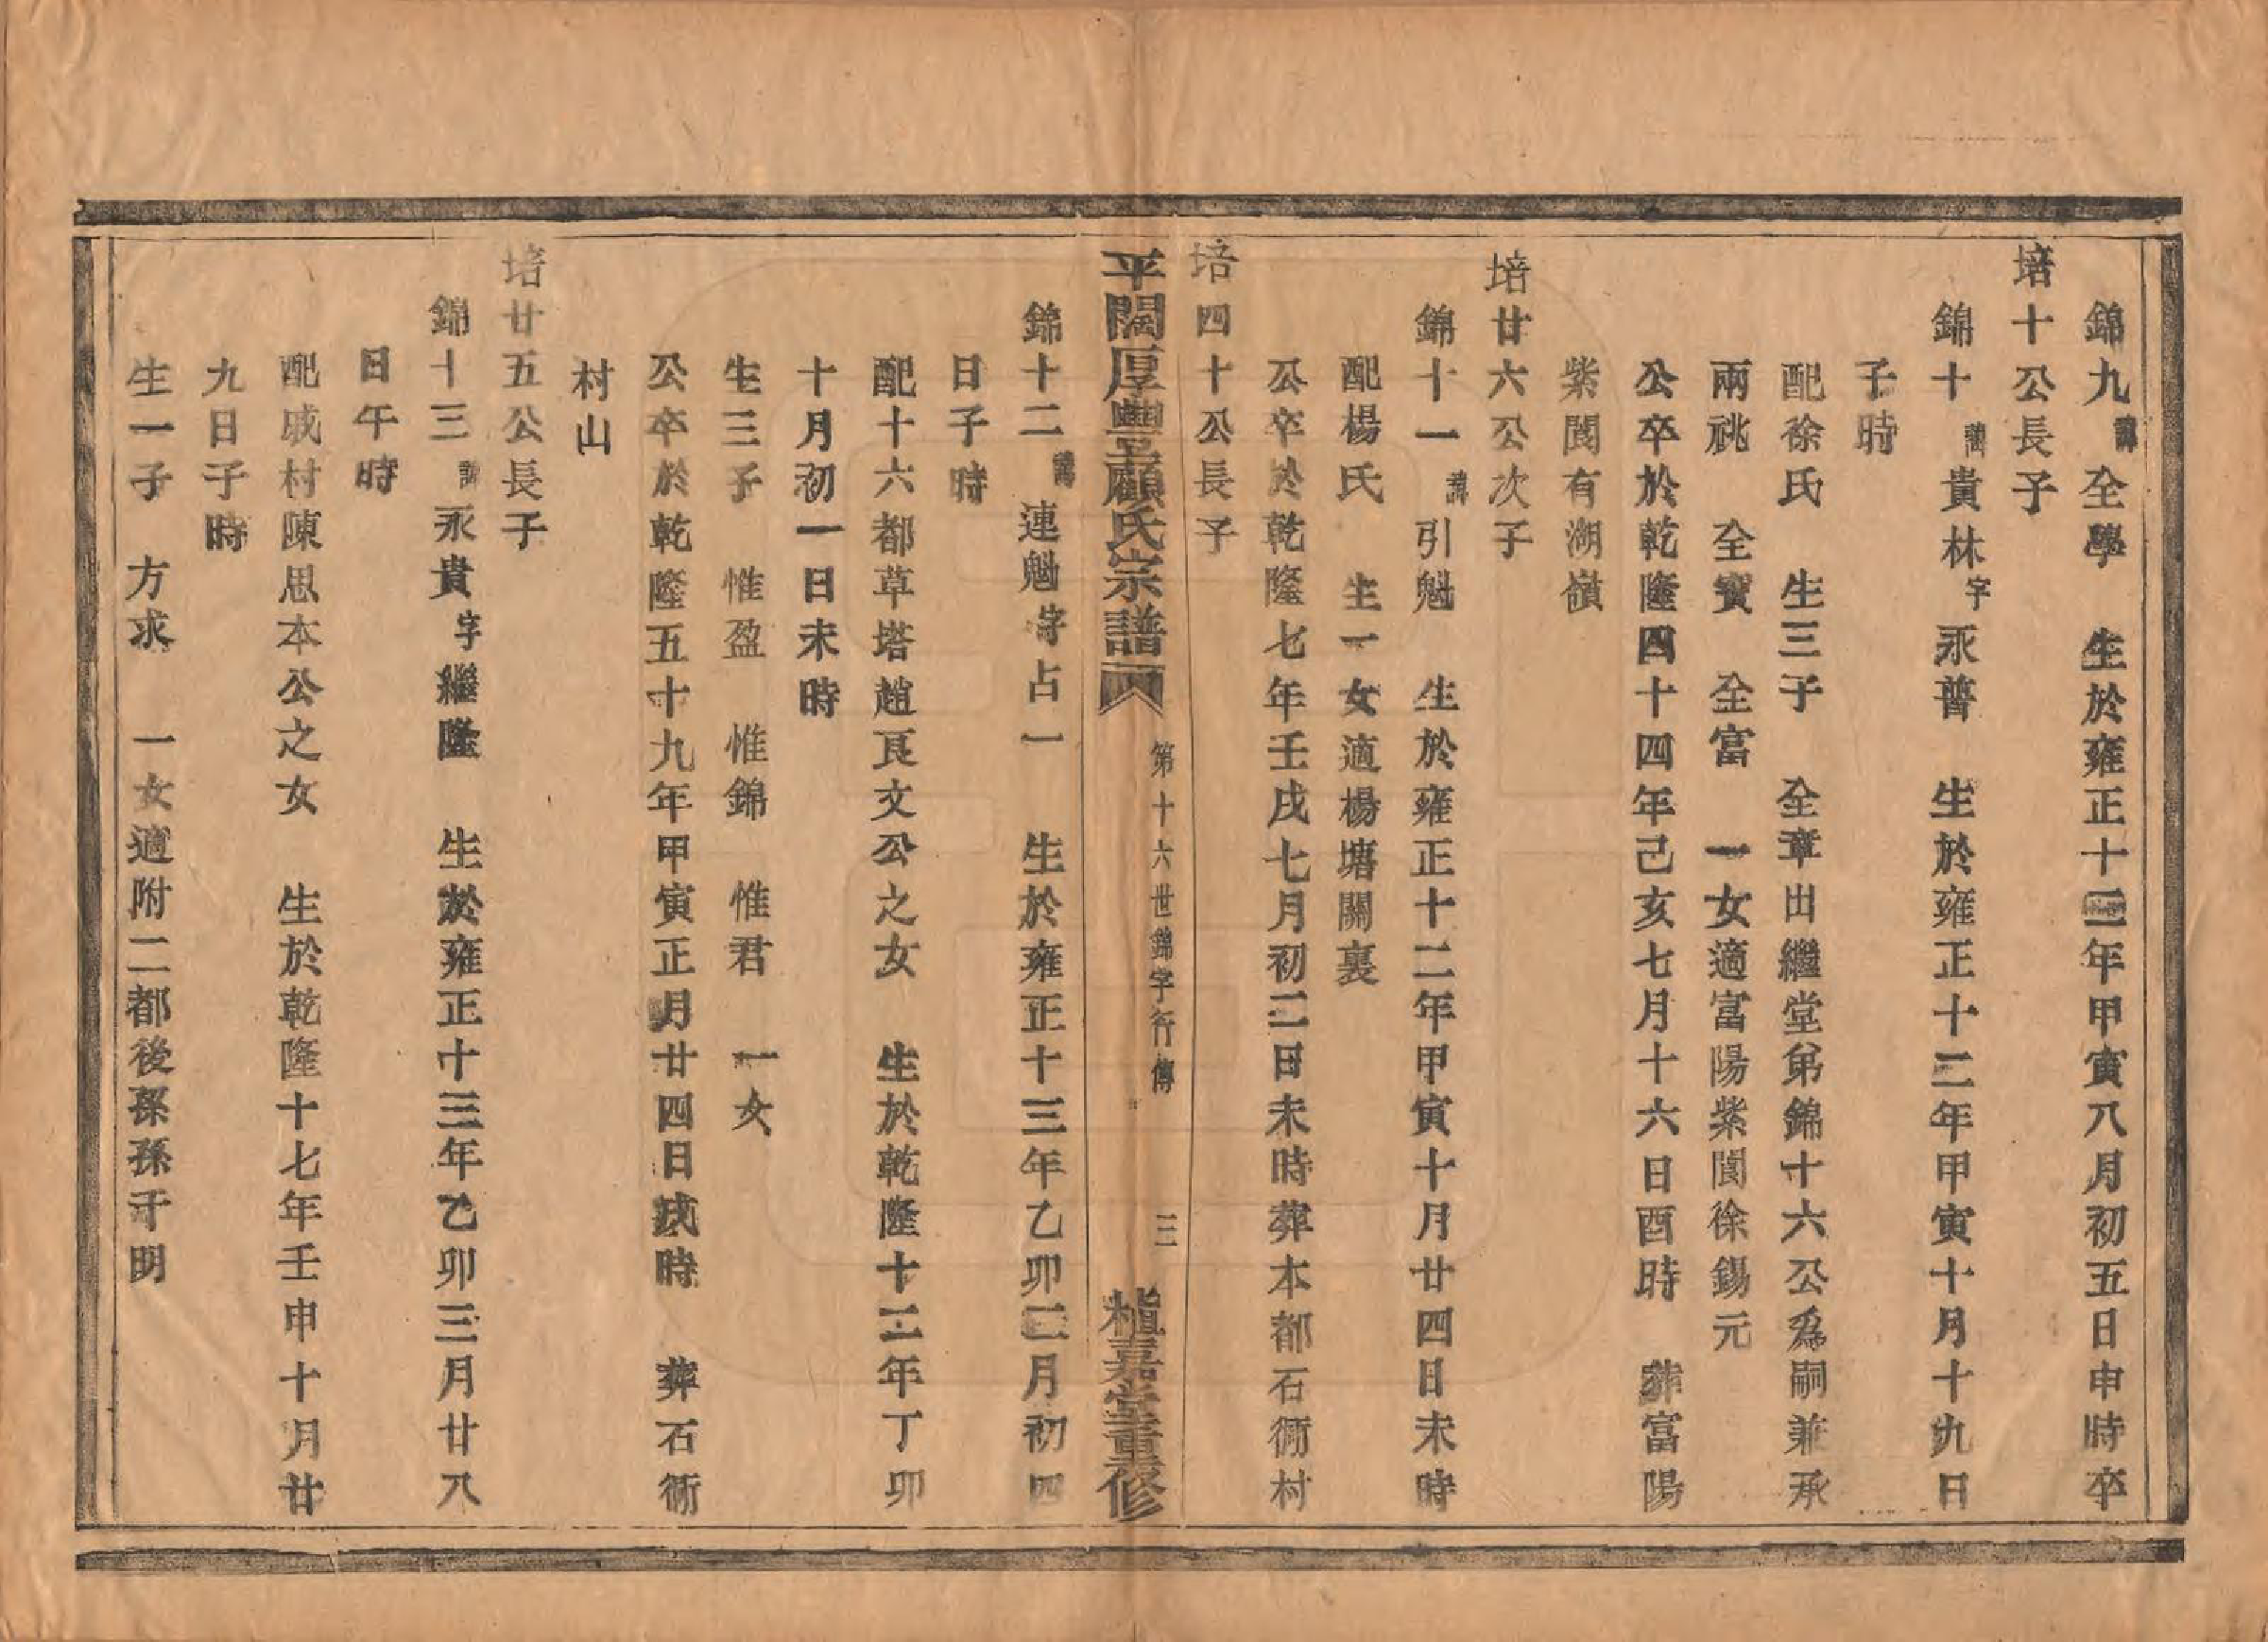 錦九諱全學　生於雍正十二年甲寅八月初五日申時卒
培十公長子
錦十諱貴林字永普　生於雍正十二年甲寅十月十九日
子時
配徐氏　生三子　全章出繼堂弟錦十六公爲嗣兼承
兩祧　全寳　全富　一女適富陽紫閬徐錫元
公卒於乾隆四十四年己亥七月十六日酉時　葬富陽
紫閬有湖嶺
培廿六公次子
錦十一諱引魁　生於雍正十二年甲寅十月廿四日未時
配楊氏　生一女適楊塘關裏
公卒於乾隆七年壬戌七月初二日未時葬本都石衕村
培四十公長子
平闊厚豐呈顧氏宗譜
第十六世錦字行傳
三
植嘉堂重修
錦十二諱連魁字占一　生於雍正十三年乙卯二月初四
日子時
配十六都草塔趙艮文公之女　生於乾隆十二年丁卯
十月初一日未時
生三子　惟盈　惟錦　惟君　一女
公卒於乾隆五十九年甲寅正月廿四日戌時　葬石衕
村山
培廿五公長子
錦十三諱永貴字繼隆　生於雍正十三年乙卯三月廿八
日午時
配戚村陳思本公之女　生於乾隆十七年壬申十月廿
九日子時
生一子　方求　一女適附二都後孫孫于明